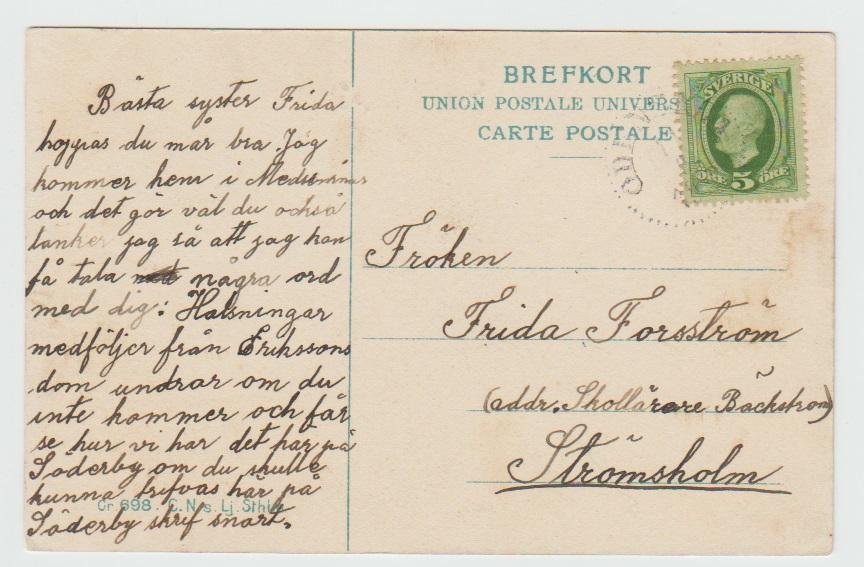 Bästa syster Frida
hoppas du mår bra. Jag
kommer hem i
och det gör väl du också
tanker jag så att jag kan
få tala några ord
med dig: Halsningar
medföljer från Erikssons
dom undrar om du
inte kommer och får
se hur vi har det här på
Söderby om du skulle
kunna trifvas här på
Söderby skrif snart.
Cr 698. C.N:s Lj. Sthlm
BREFKORT
UNION POSTALE UNIVERS
CARTE POSTALE
SVERIGE
ÖRE 5 ÖRE
Fröken
Frida Forsström
(addr. Skollärare Bäckstrom)
Strömsholm